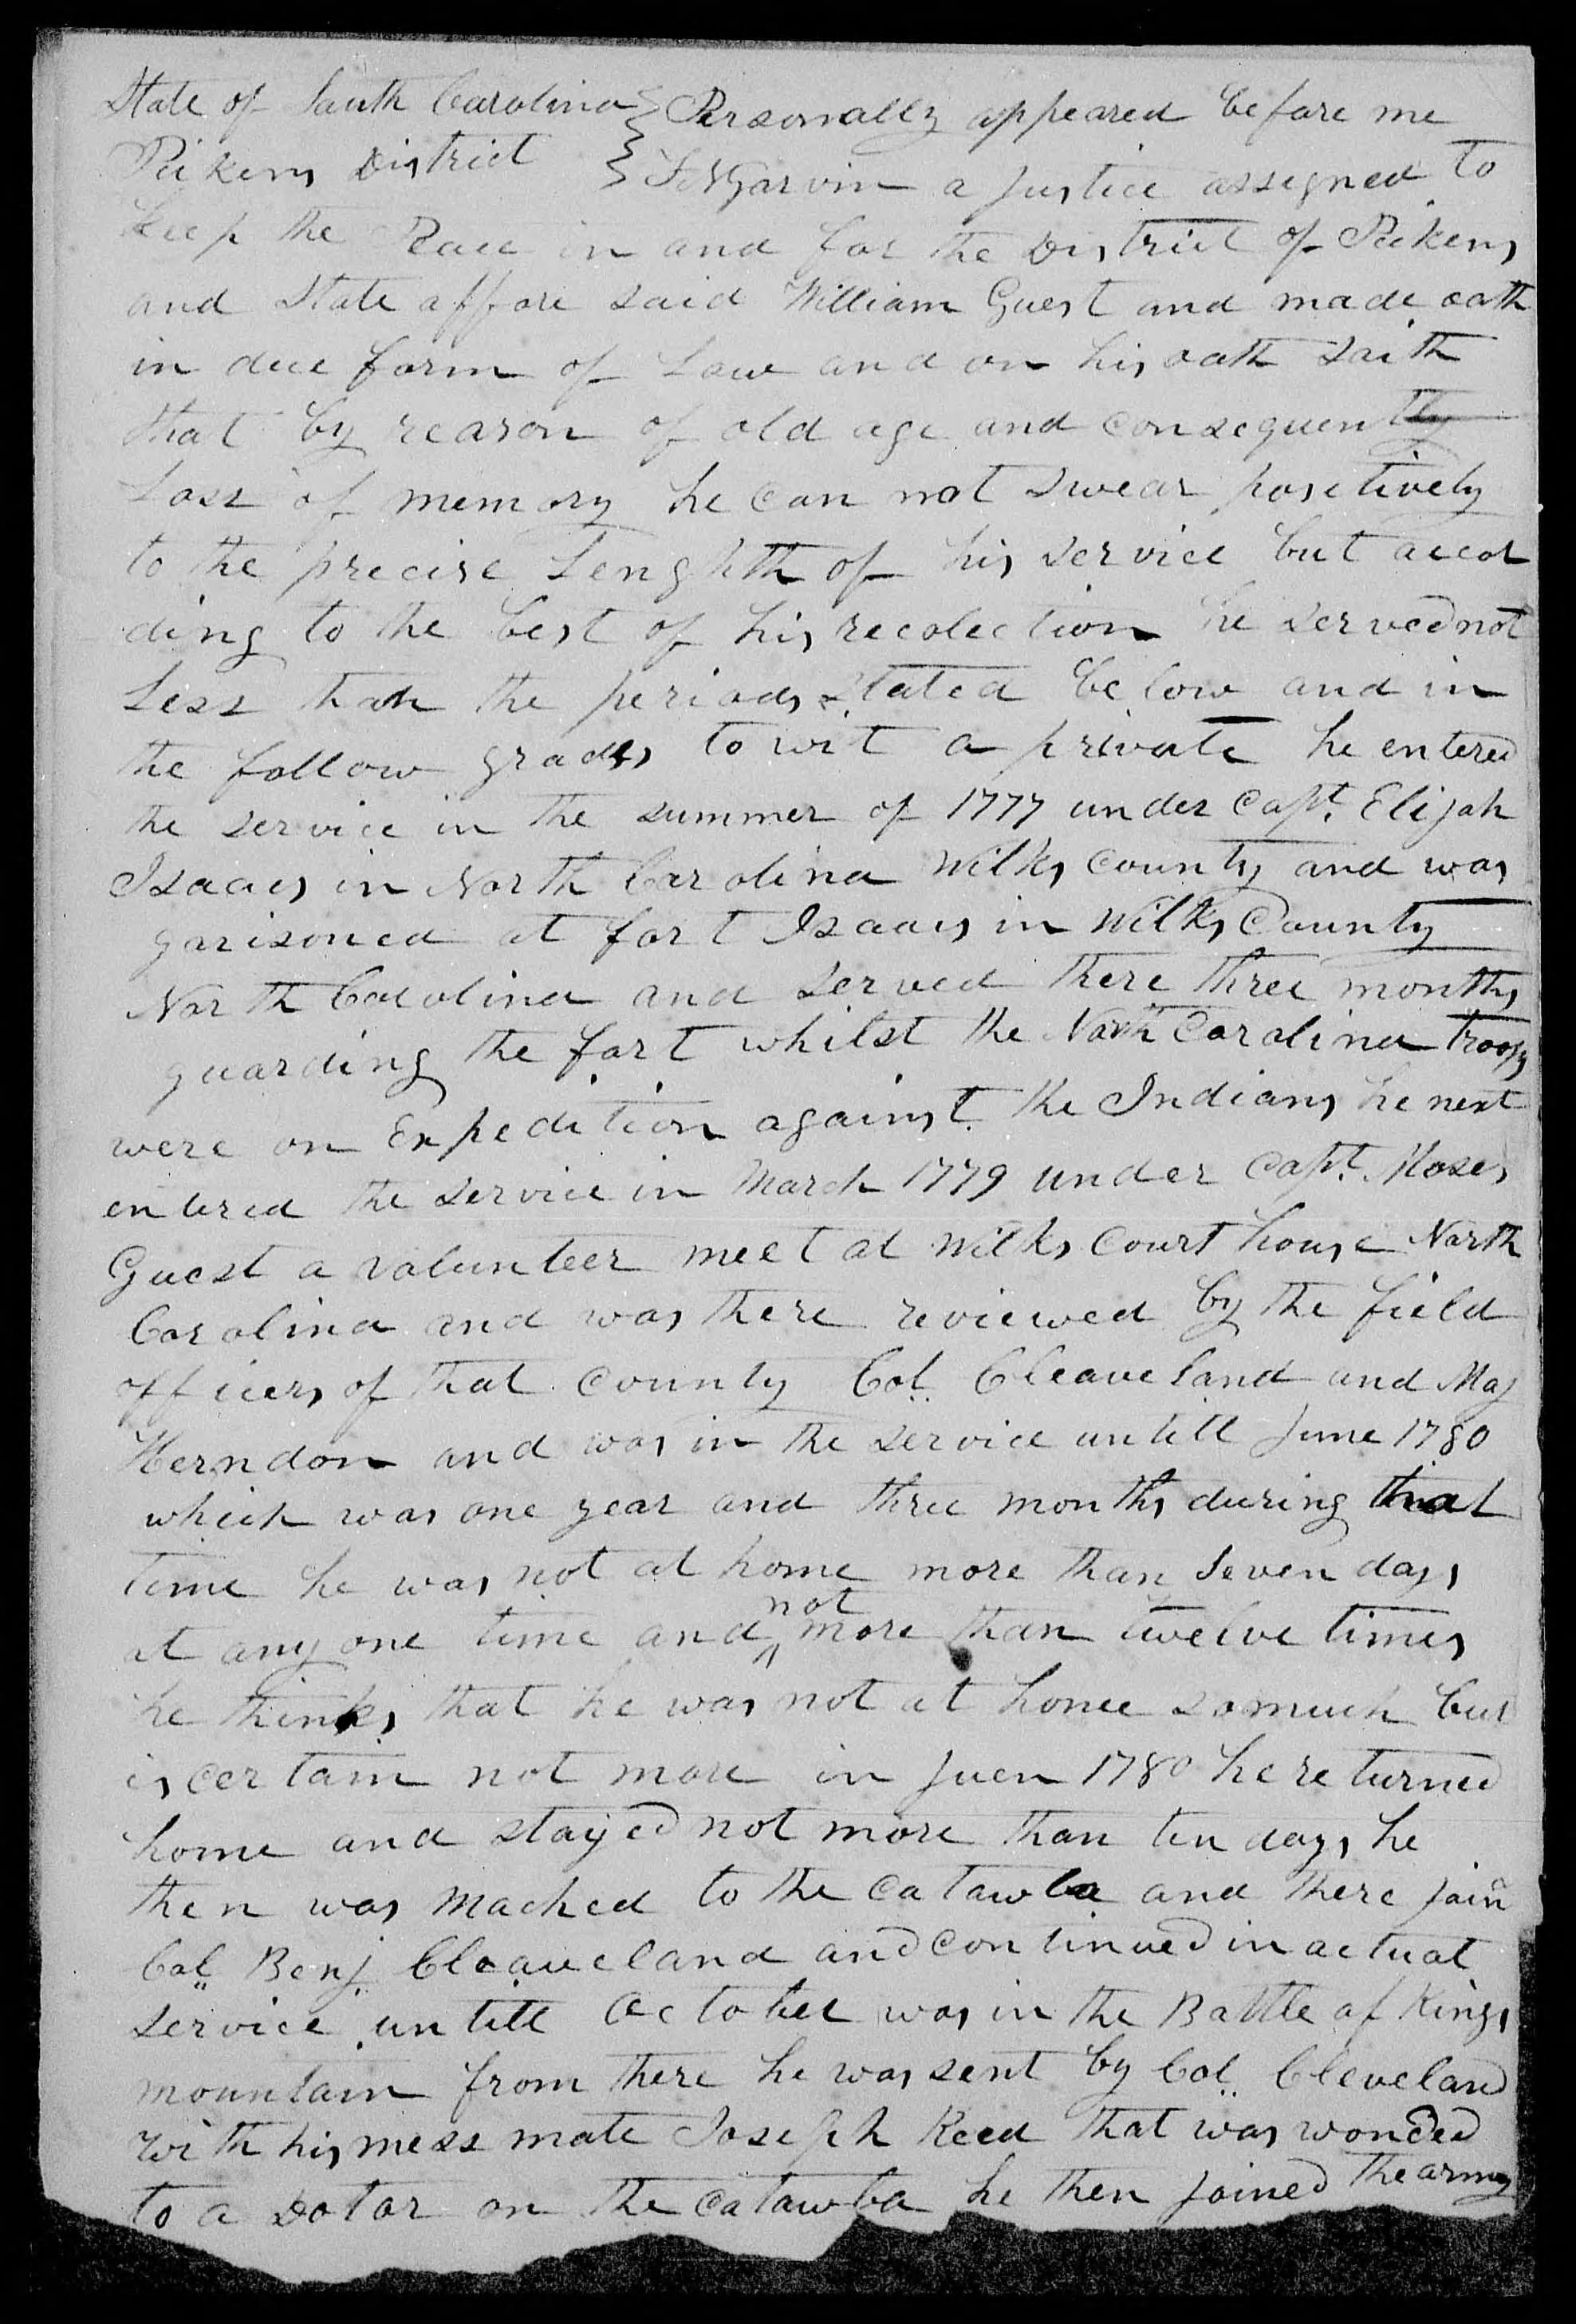 State of South Carolina } Personally appeared before me
Pickens District } Garvin a Justice assigned to
keep the Peace in and for the District of Pickens
and State affore said William Guest and made oath
in due form of Law and on his oath Saith
that by reason of old age and consequently
Loss of memory he can not Swear positively
to the precise Lenghth of his Service but accor
ding to the best of his recolection he Served not
Less than the periods Stated below and in
the follow grades to wit a private he entered
the Service in the summer of 1777 under Capt. Elijah
Isaacs in North Carolina Wilks County and was
garisoned at fort Isaacs in Wilks County
North Carolina and Served there three months
guarding the fort whilst the North Carolina troops
were on Expedition against the Indians he next
entered the Service in March 1779 under Capt. Moses
Guest a volunteer meet at Wilks Court house North
Carolina and was there reviewed by the field
officers of that County Col. Cleaveland and Maj
Herndon and was in the Service untill June 1780
which was one year and three months during that
time he was not at home more than Seven days
at any one time and not more than twelve times
he thinks that he was not at home so much but
is certain not more in Juen 1780 he returned
home and stayed not more than ten days he
then was Mached to the Catawba and there Joind
Col. Benj. Cleaveland and continued in actual
Service untill October was in the Battle of Kings
mountain from there he was sent by Col. Cleveland
with his mess mate Joseph Reed that was wonded
to a Dotor on the Catawba he then Joined the army